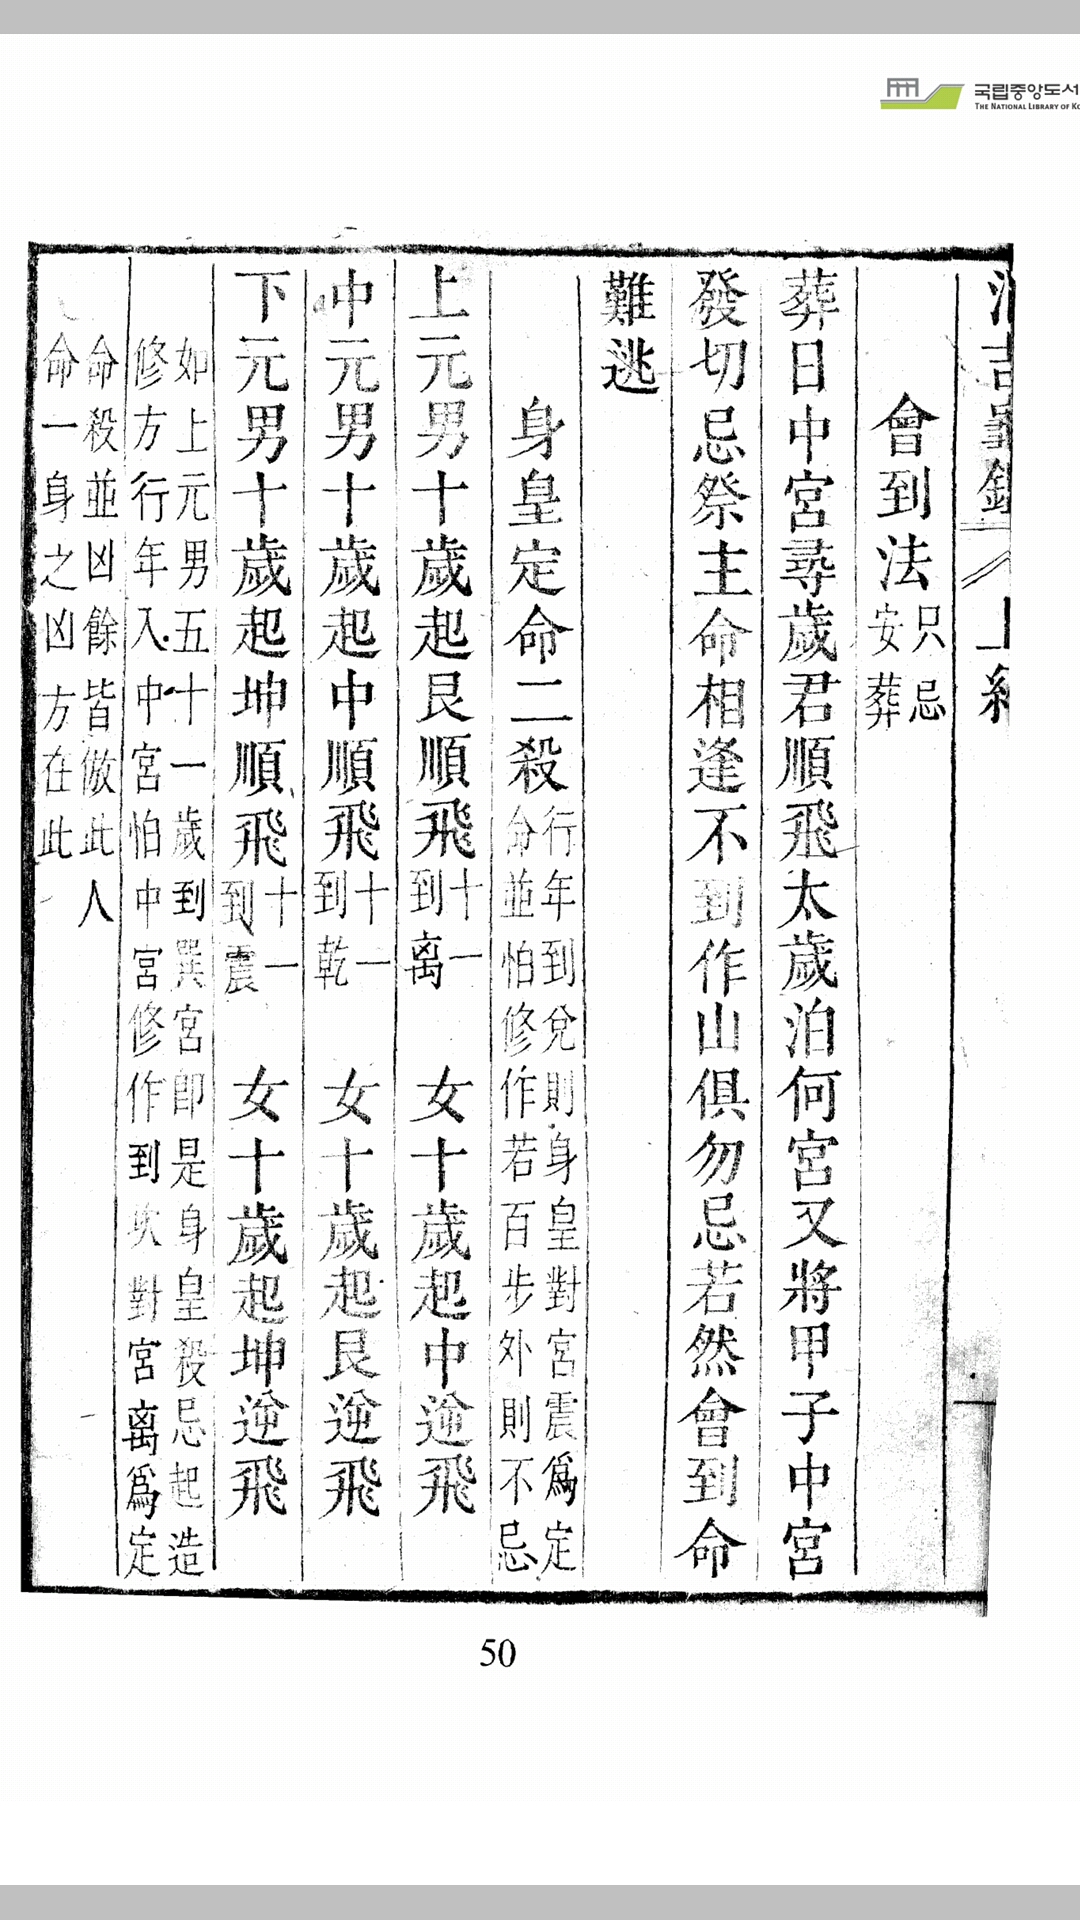 국립중앙도서
THE NATIONAL LIBRARY OF KO
吉 上
會到法只忌安葬
葬日中宮尋歲君順飛太歲泊何宮又將甲子中宮
發切忌祭主命相逢不到作山俱勿忌若然會到命
難逃
身皇定命二殺行年到兌則身皇對宮震爲定
命並怕修作若百步外則不忌
上元男十歲起艮順飛十一到离 女十歲起中逆飛
中元男十歲起中順飛十一到乾 女十歲起艮逆飛
下元男十歲起坤順飛十一到震 女十歲起坤逆飛
如上元男五十一歲到巽宮卽是身皇殺忌起造
修方行年入中宮怕中宮修作到坎對宮离爲定
命殺並凶餘皆倣此人
命一身之凶方在此
50